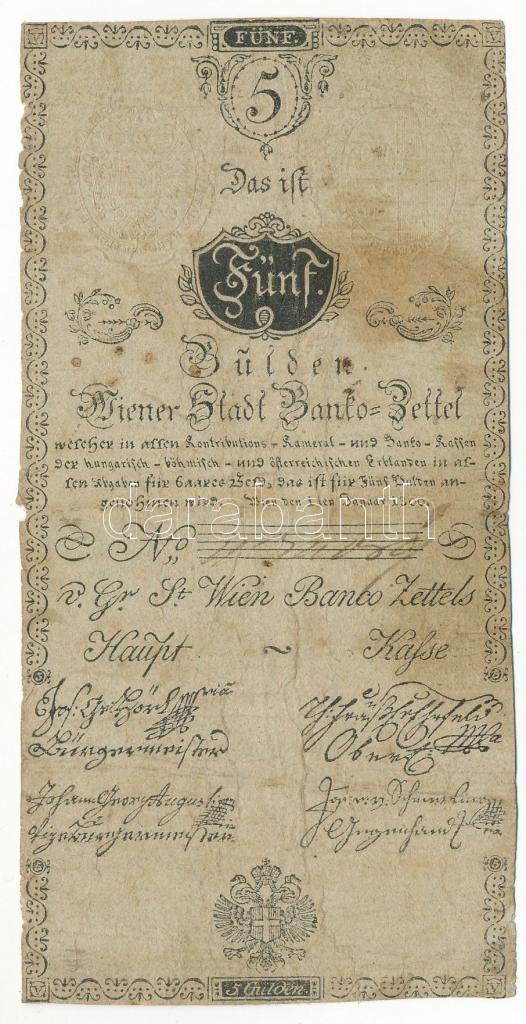 V FÜNF. V
5
Das ist
Fünf.
Gulden
Wiener Stadt Banko=Zettel
welcher in allen Kontributions- Kameral- und Banko- Kassen
der hungarisch- böhmisch- und österreichischen Erblanden in al-
len Abgaben für baares Geld, das ist für Fünf Gulden an-
genohmen wird. Wien den 1ten Januar
darabanth
No
d. Gr St Wien Banco Zettels
Haupt ~ Kasse
Bürgermeister Ober
Johann Georg Augusti
Vizebürgermeister Gegenhand
5 5
V 5 Gulden. V